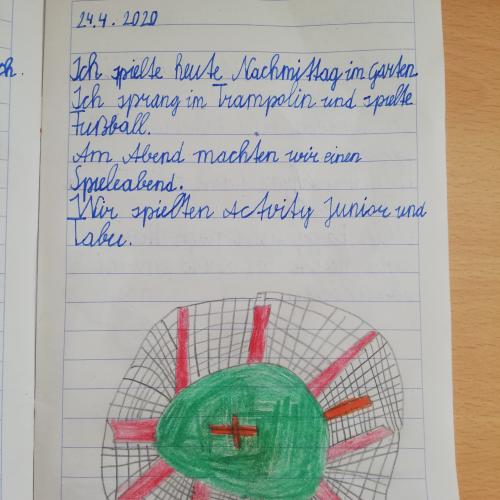 ch.
24.4.2020
Ich spielte heute Nachmittag im Garten.
Ich sprang im Trampolin und spielte
Fußball.
Am Abend machten wir einen
Spieleabend.
Wir spielten Activity Junior und
Tabu.